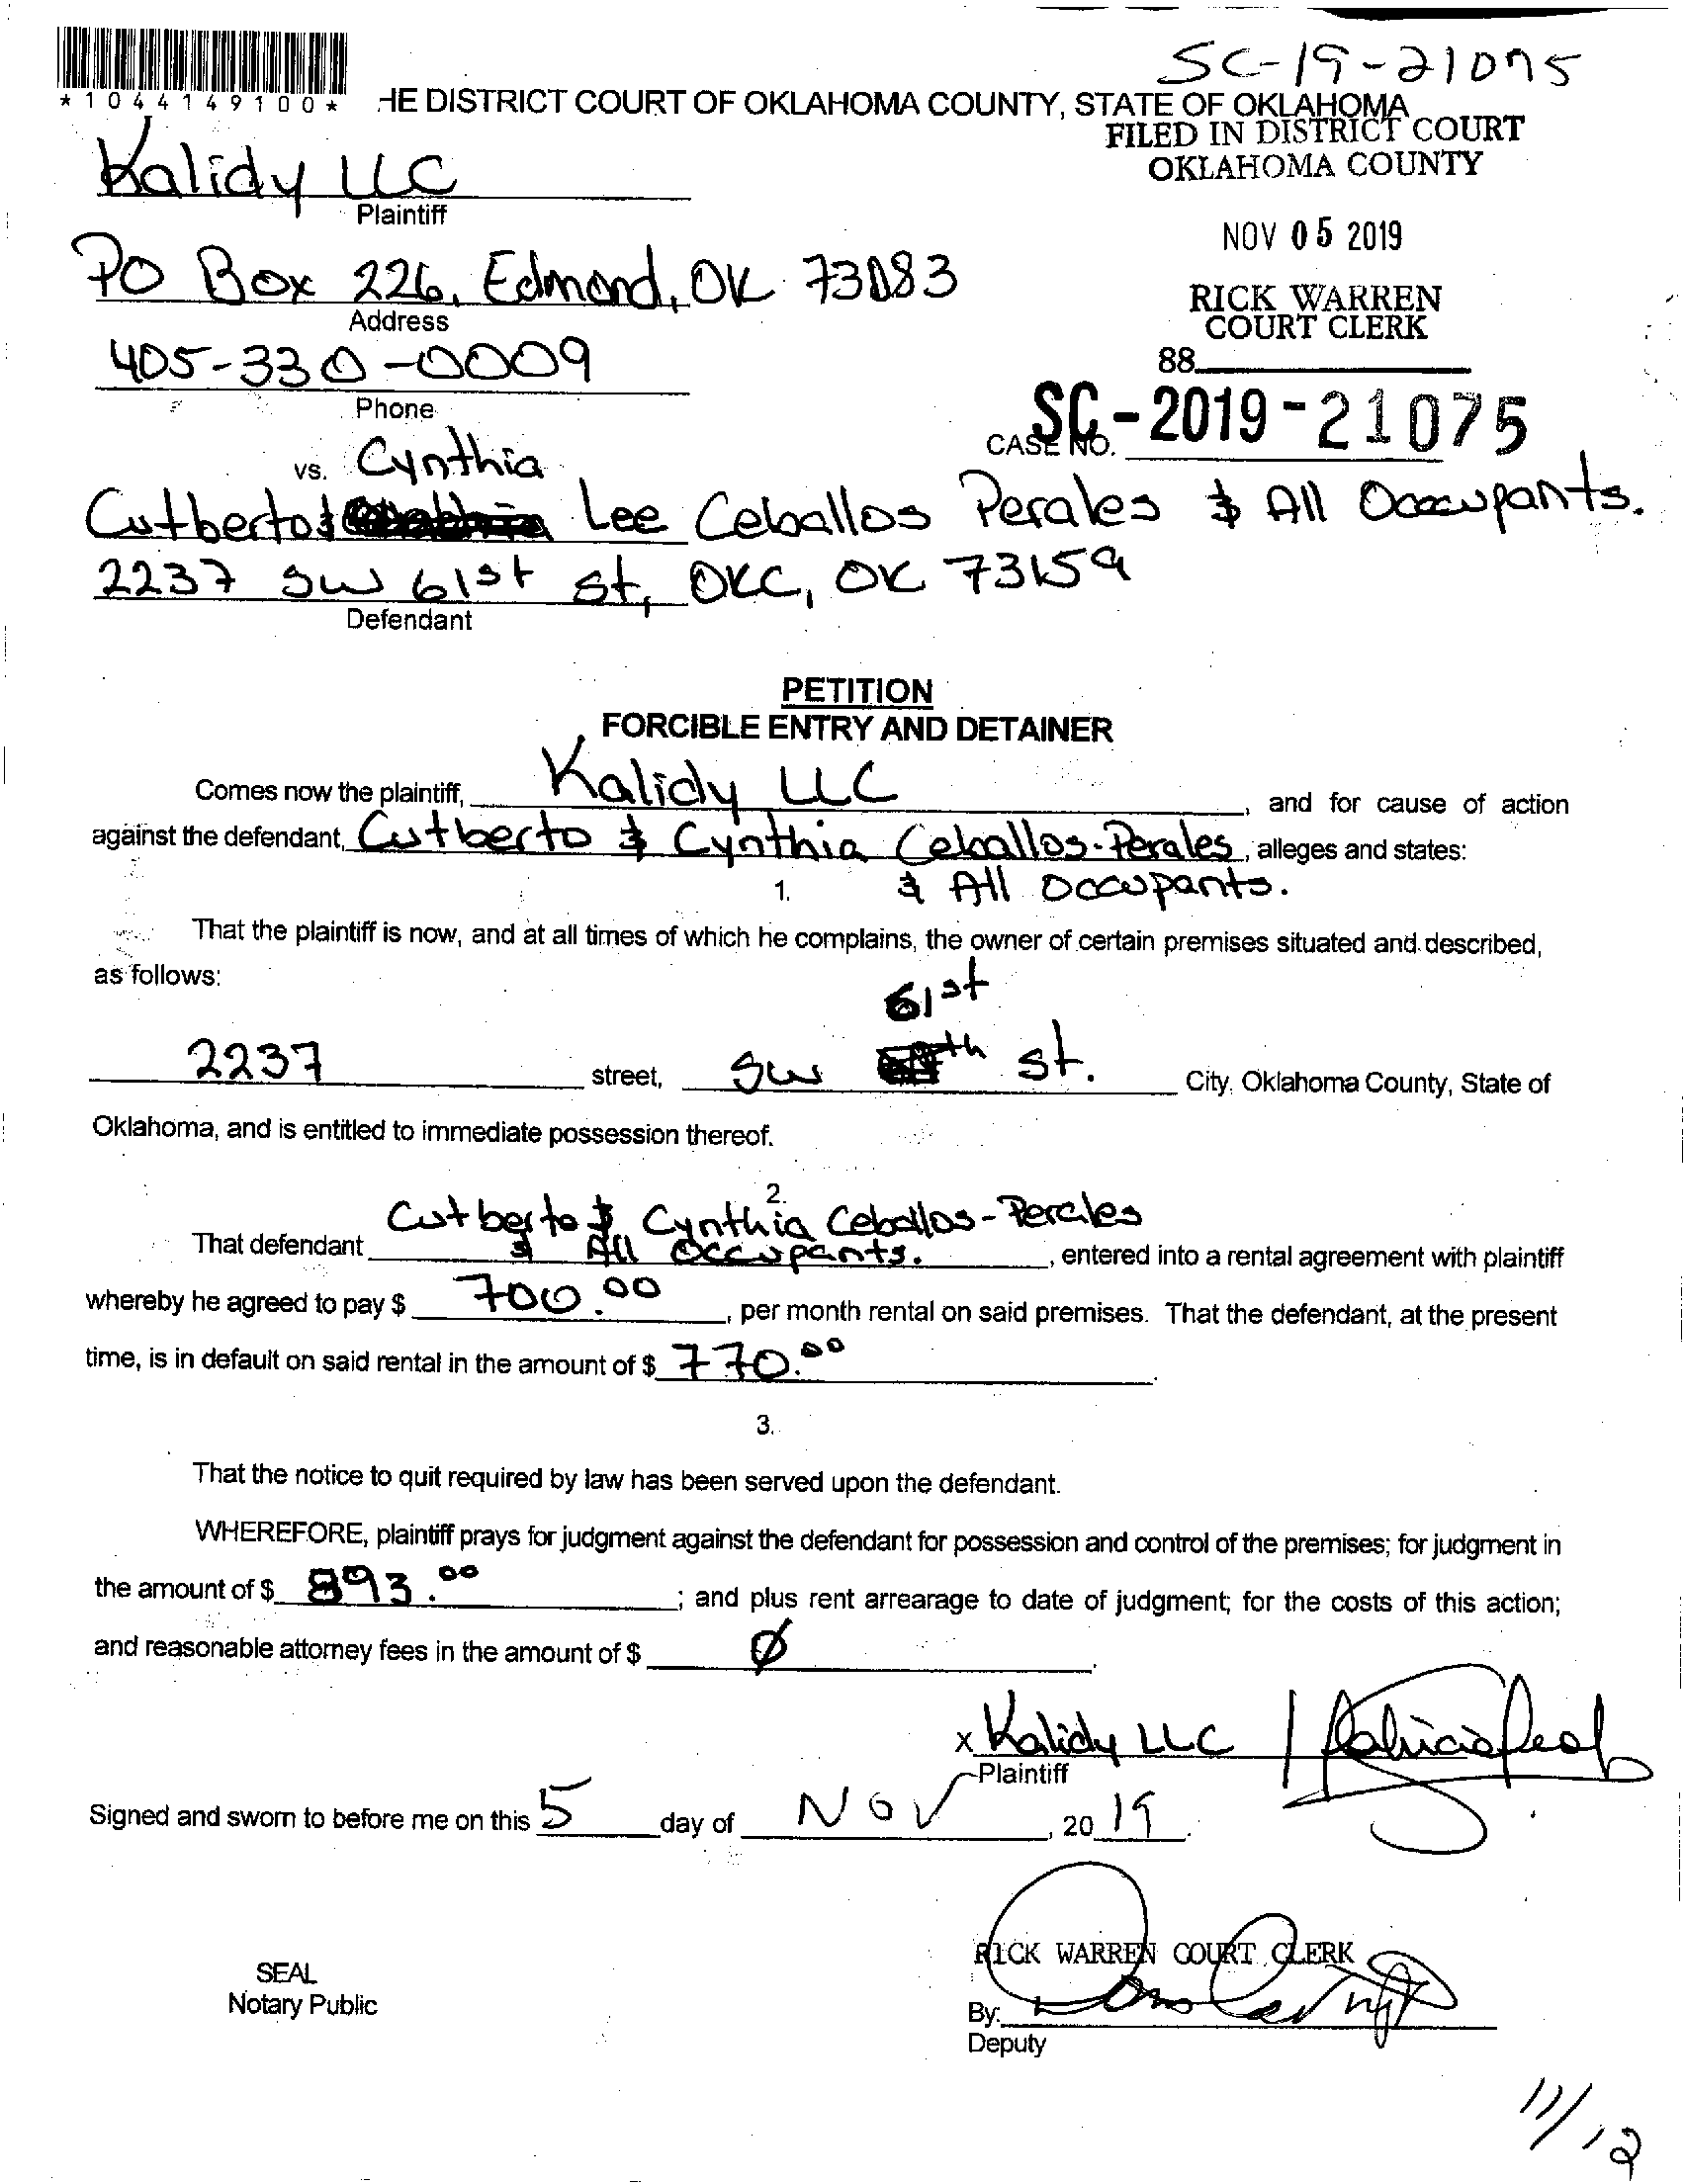 SC-19-21075
*1044149100* HE DISTRICT COURT OF OKLAHOMA COUNTY, STATE OF OKLAHOMA
FILED IN DISTRICT COURT
OKLAHOMA COUNTY
Kalidy LLC
Plaintiff
NOV 05 2019
PO Box 226, Edmond, OK 73083
Address
RICK WARREN
COURT CLERK
405-330-0009
Phone
88
CASE NO. SC-2019-21075
vs. Cynthia
Cutberto & Lee Ceballos Perales & All Occupants.
2237 SW 61st st, OKC, OK 73159
Defendant
PETITION
FORCIBLE ENTRY AND DETAINER
Comes now the plaintiff, Kalidy LLC, and for cause of action
against the defendant, Cutberto & Cynthia Ceballos-Perales, alleges and states:
1. & All Occupants.
That the plaintiff is now, and at all times of which he complains, the owner of certain premises situated and described,
as follows:
61st
2237 street, SW th st. City, Oklahoma County, State of
Oklahoma, and is entitled to immediate possession thereof.
2.
Cutberto & Cynthia Ceballos-Perales
That defendant & All Occupants., entered into a rental agreement with plaintiff
whereby he agreed to pay $ 700.00, per month rental on said premises. That the defendant, at the present
time, is in default on said rental in the amount of $ 770.00.
3.
That the notice to quit required by law has been served upon the defendant.
WHEREFORE, plaintiff prays for judgment against the defendant for possession and control of the premises; for judgment in
the amount of $ 893.00; and plus rent arrearage to date of judgment; for the costs of this action;
and reasonable attorney fees in the amount of $ Ø.
x Kalidy LLC |
Plaintiff
Signed and sworn to before me on this 5 day of NOV, 2019.
RICK WARREN COURT CLERK
SEAL
Notary Public
By:
Deputy
11/12